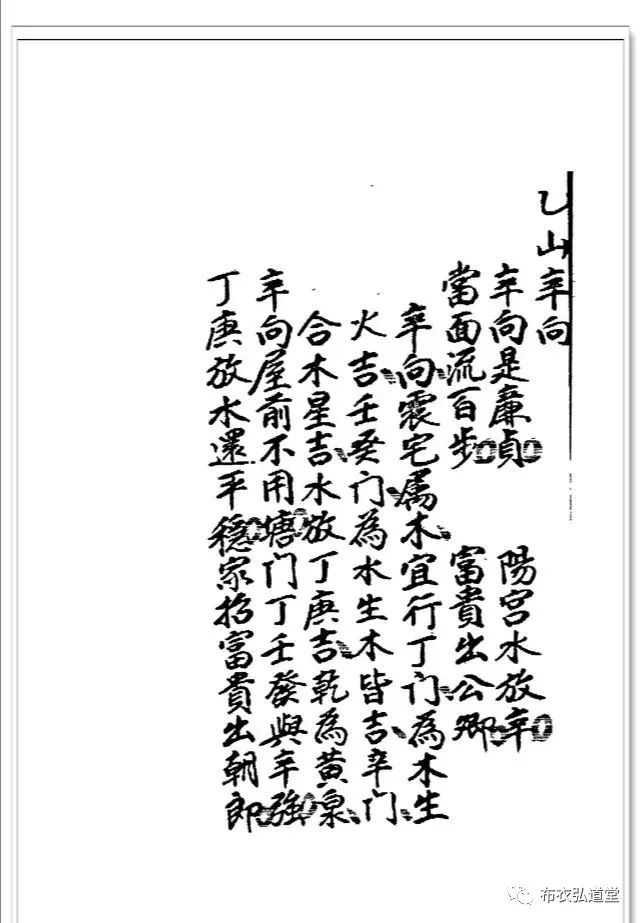 乙山辛向
辛向是廉貞。 陽宮水放辛。
當面流百步。 富貴出公卿。
辛向震宅属木、宜行丁门、為木生
火吉、壬癸门、為水生木皆吉、辛门、
合木星吉、水放丁庚吉、乾為黄泉、
辛向屋前不用塘。门丁壬發與辛強。
丁庚放水還平穩。家招富貴出朝郎。
布衣弘道堂